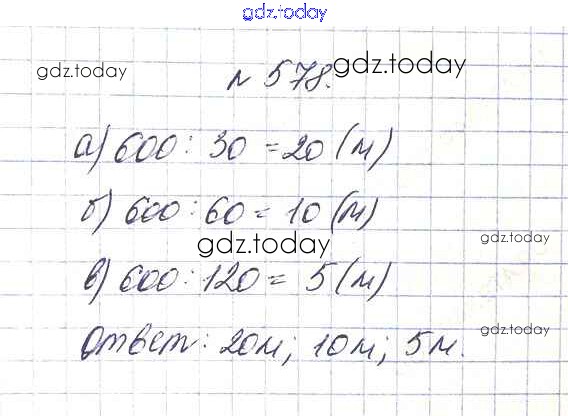 gdz.today
gdz.today № 578. gdz.today
а) 600 : 30 = 20 (м)
б) 600 : 60 = 10 (м)
gdz.today gdz.today
в) 600 : 120 = 5 (м)
gdz.today
Ответ: 20м; 10м; 5м.